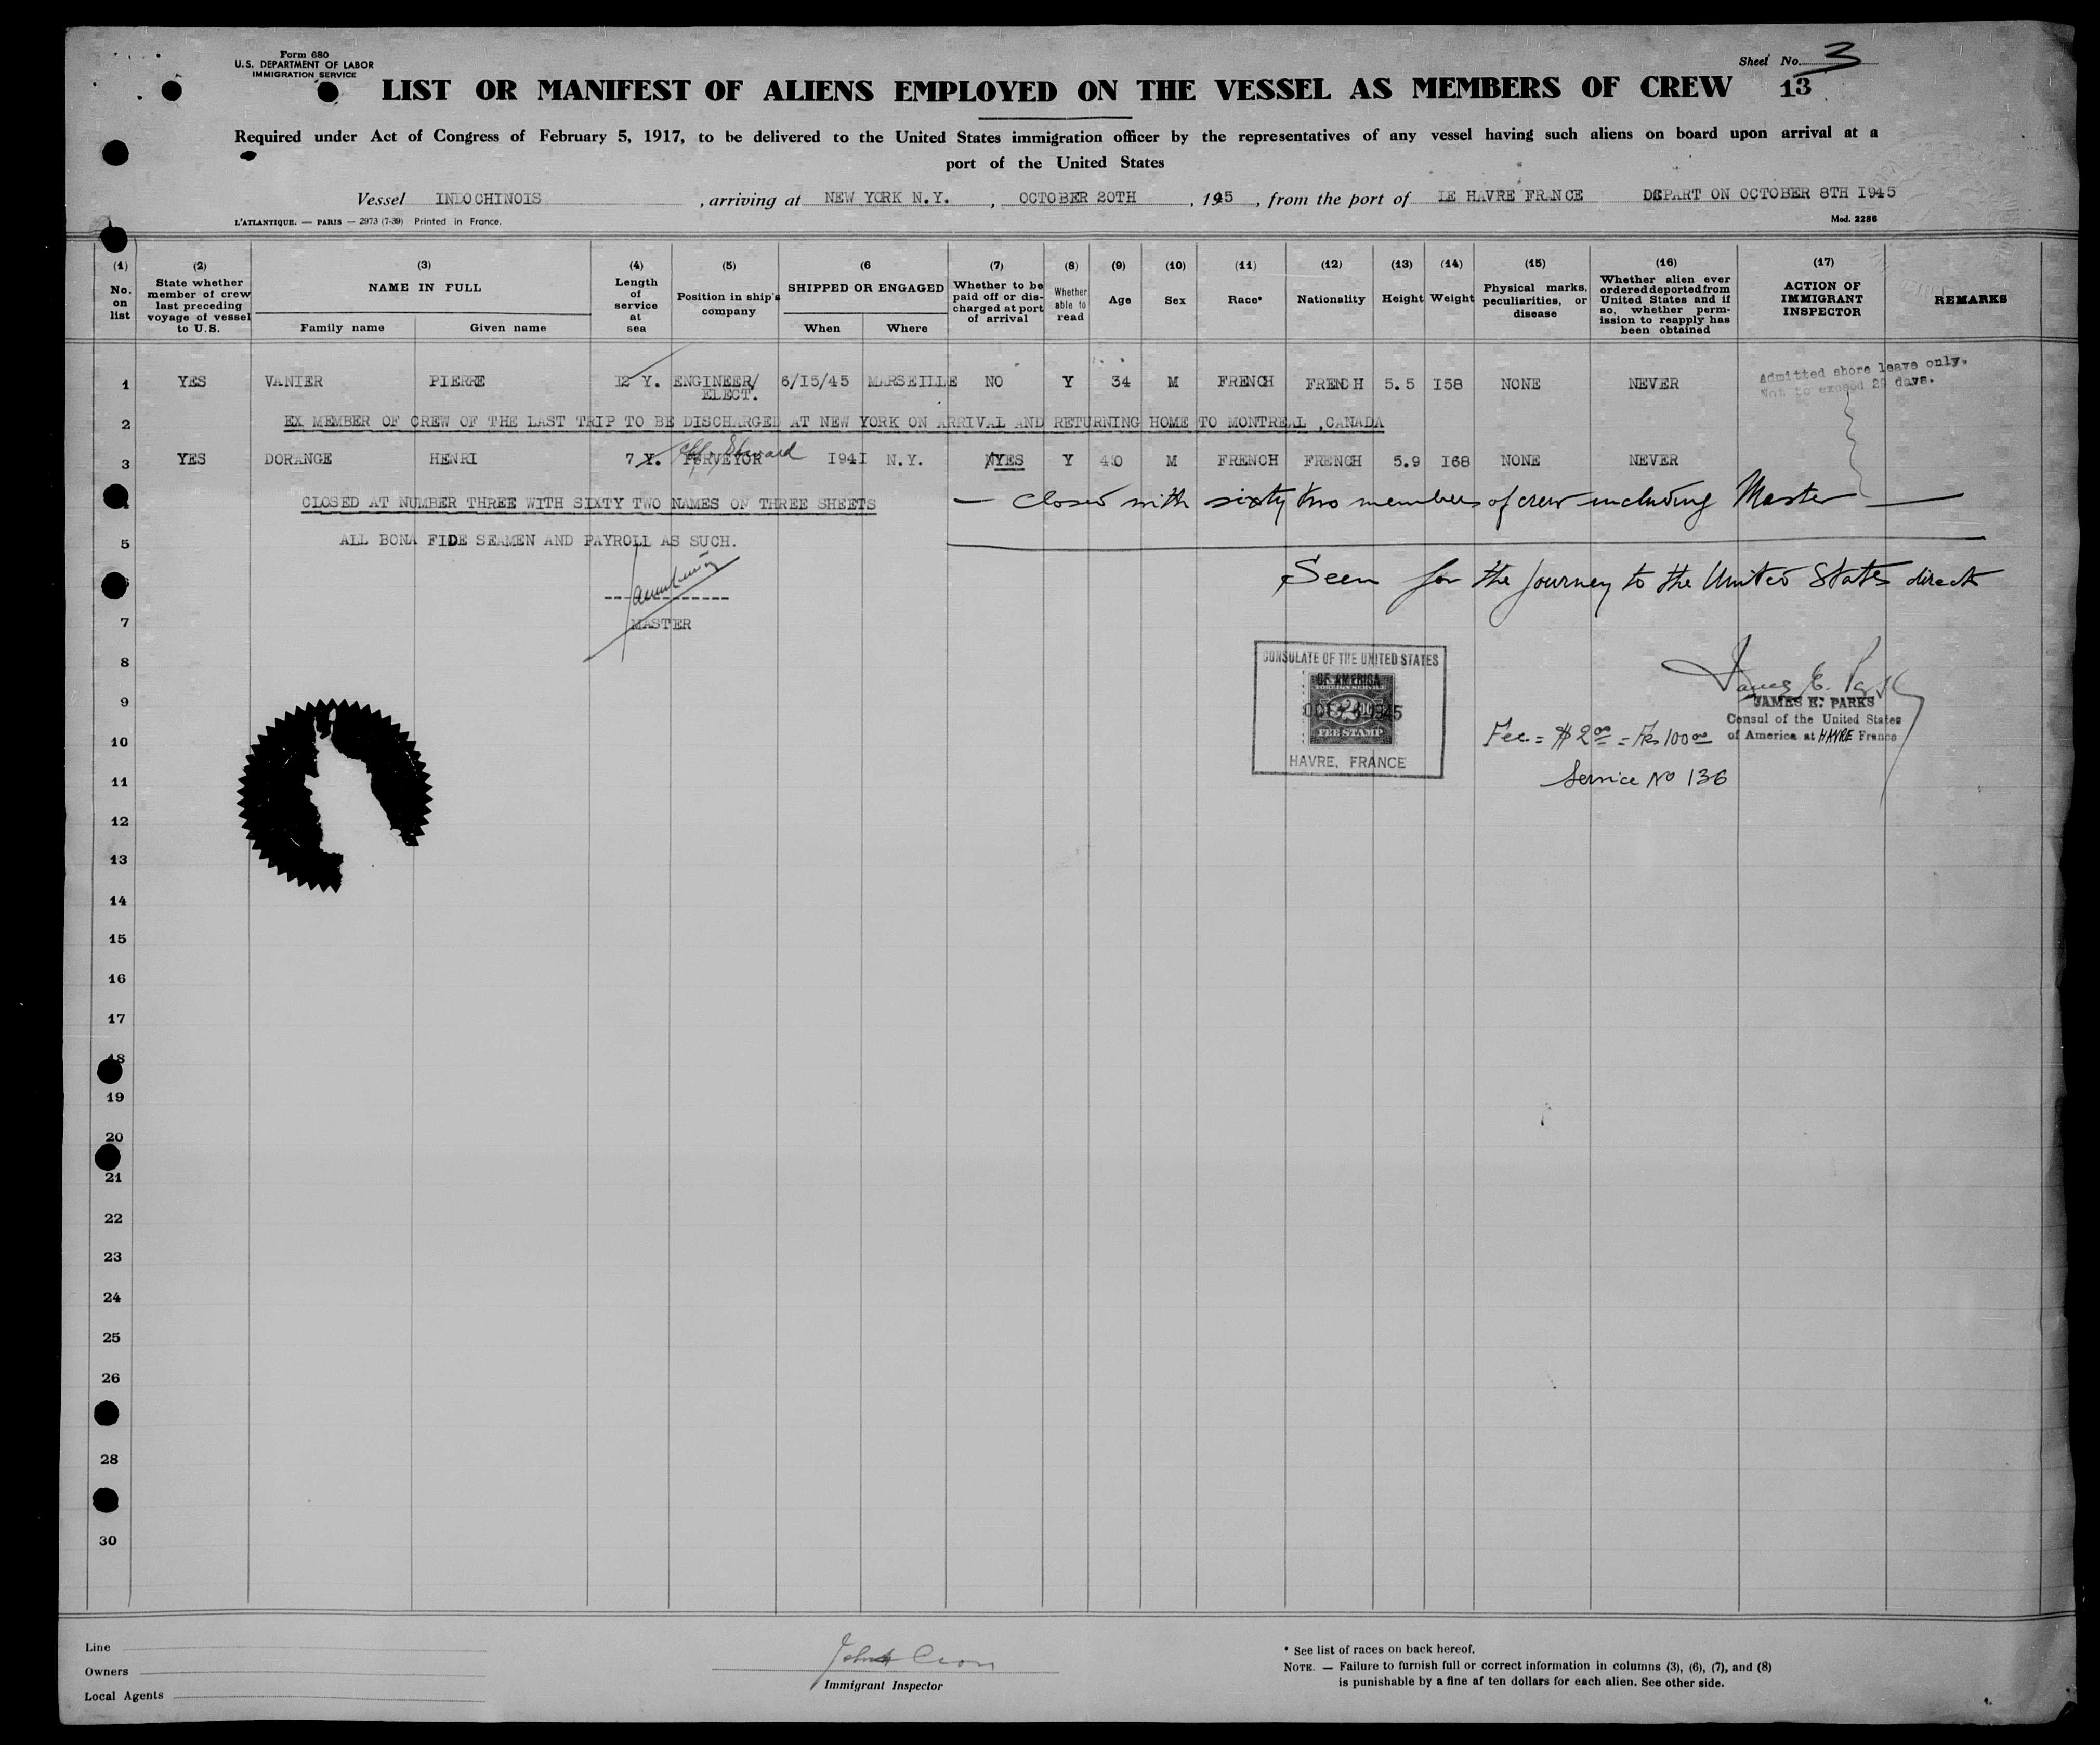 Form 680
U.S. DEPARTMENT OF LABOR
IMMIGRATION SERVICE
Sheet No. 3
13
LIST OR MANIFEST OF ALIENS EMPLOYED ON THE VESSEL AS MEMBERS OF CREW
Required under Act of Congress of February 5, 1917, to be delivered to the United States immigration officer by the representatives of any vessel having such aliens on board upon arrival at a
port of the United States
Vessel INDOCHINOIS , arriving at NEW YORK N.Y. , OCTOBER 20TH , 1945 , from the port of LE HAVRE FRANCE DEPART ON OCTOBER 8TH I945
L'ATLANTIQUE. — PARIS — 2973 (7-39) Printed in France.
Mod. 2286
(1) No. on list
(2) State whether member of crew last preceding voyage of vessel to U.S.
(3) NAME IN FULL
Family name Given name
(4) Length of service at sea
(5) Position in ship's company
(6 SHIPPED OR ENGAGED
When Where
(7) Whether to be paid off or discharged at port of arrival
(8) Whether able to read
(9) Age
(10) Sex
(11) Race*
(12) Nationality
(13) Height
(14) Weight
(15) Physical marks, peculiarities, or disease
(16) Whether alien ever ordered deported from United States and if so, whether permission to reapply has been obtained
(17) ACTION OF IMMIGRANT INSPECTOR
REMARKS
1 YES VANIER PIERRE I2 Y. ENGINEER/ ELECT. 6/I5/45 MARSEILLE NO Y 34 M FRENCH FRENCH 5.5 I58 NONE NEVER
Admitted shore leave only.
Not to exceed 29 days.
2 EX MEMBER OF CREW OF THE LAST TRIP TO BE DISCHARGED AT NEW YORK ON ARRIVAL AND RETURNING HOME TO MONTREAL ,CANADA
3 YES DORANGE HENRI 7 Y. PURVEYOR Steward I94I N.Y. YES Y 40 M FRENCH FRENCH 5.9 I68 NONE NEVER
4 CLOSED AT NUMBER THREE WITH SIXTY TWO NAMES ON THREE SHEETS
— Closed with sixty two members of crew including Master —
5 ALL BONA FIDE SEAMEN AND PAYROLL AS SUCH.
6
Seen for the journey to the United States direct
7 MASTER
8
CONSULATE OF THE UNITED STATES
OF AMERICA
FOREIGN SERVICE
FEE STAMP
HAVRE, FRANCE
James E. Parks
JAMES E. PARKS
Consul of the United States
of America at HAVRE France
Fee = $ 2.00 = Frs 100.00
Service No 136
9
10
11
12
13
14
15
16
17
18
19
20
21
22
23
24
25
26
28
30
Line
Owners
Local Agents
Immigrant Inspector
* See list of races on back hereof.
NOTE. — Failure to furnish full or correct information in columns (3), (6), (7), and (8)
is punishable by a fine af ten dollars for each alien. See other side.